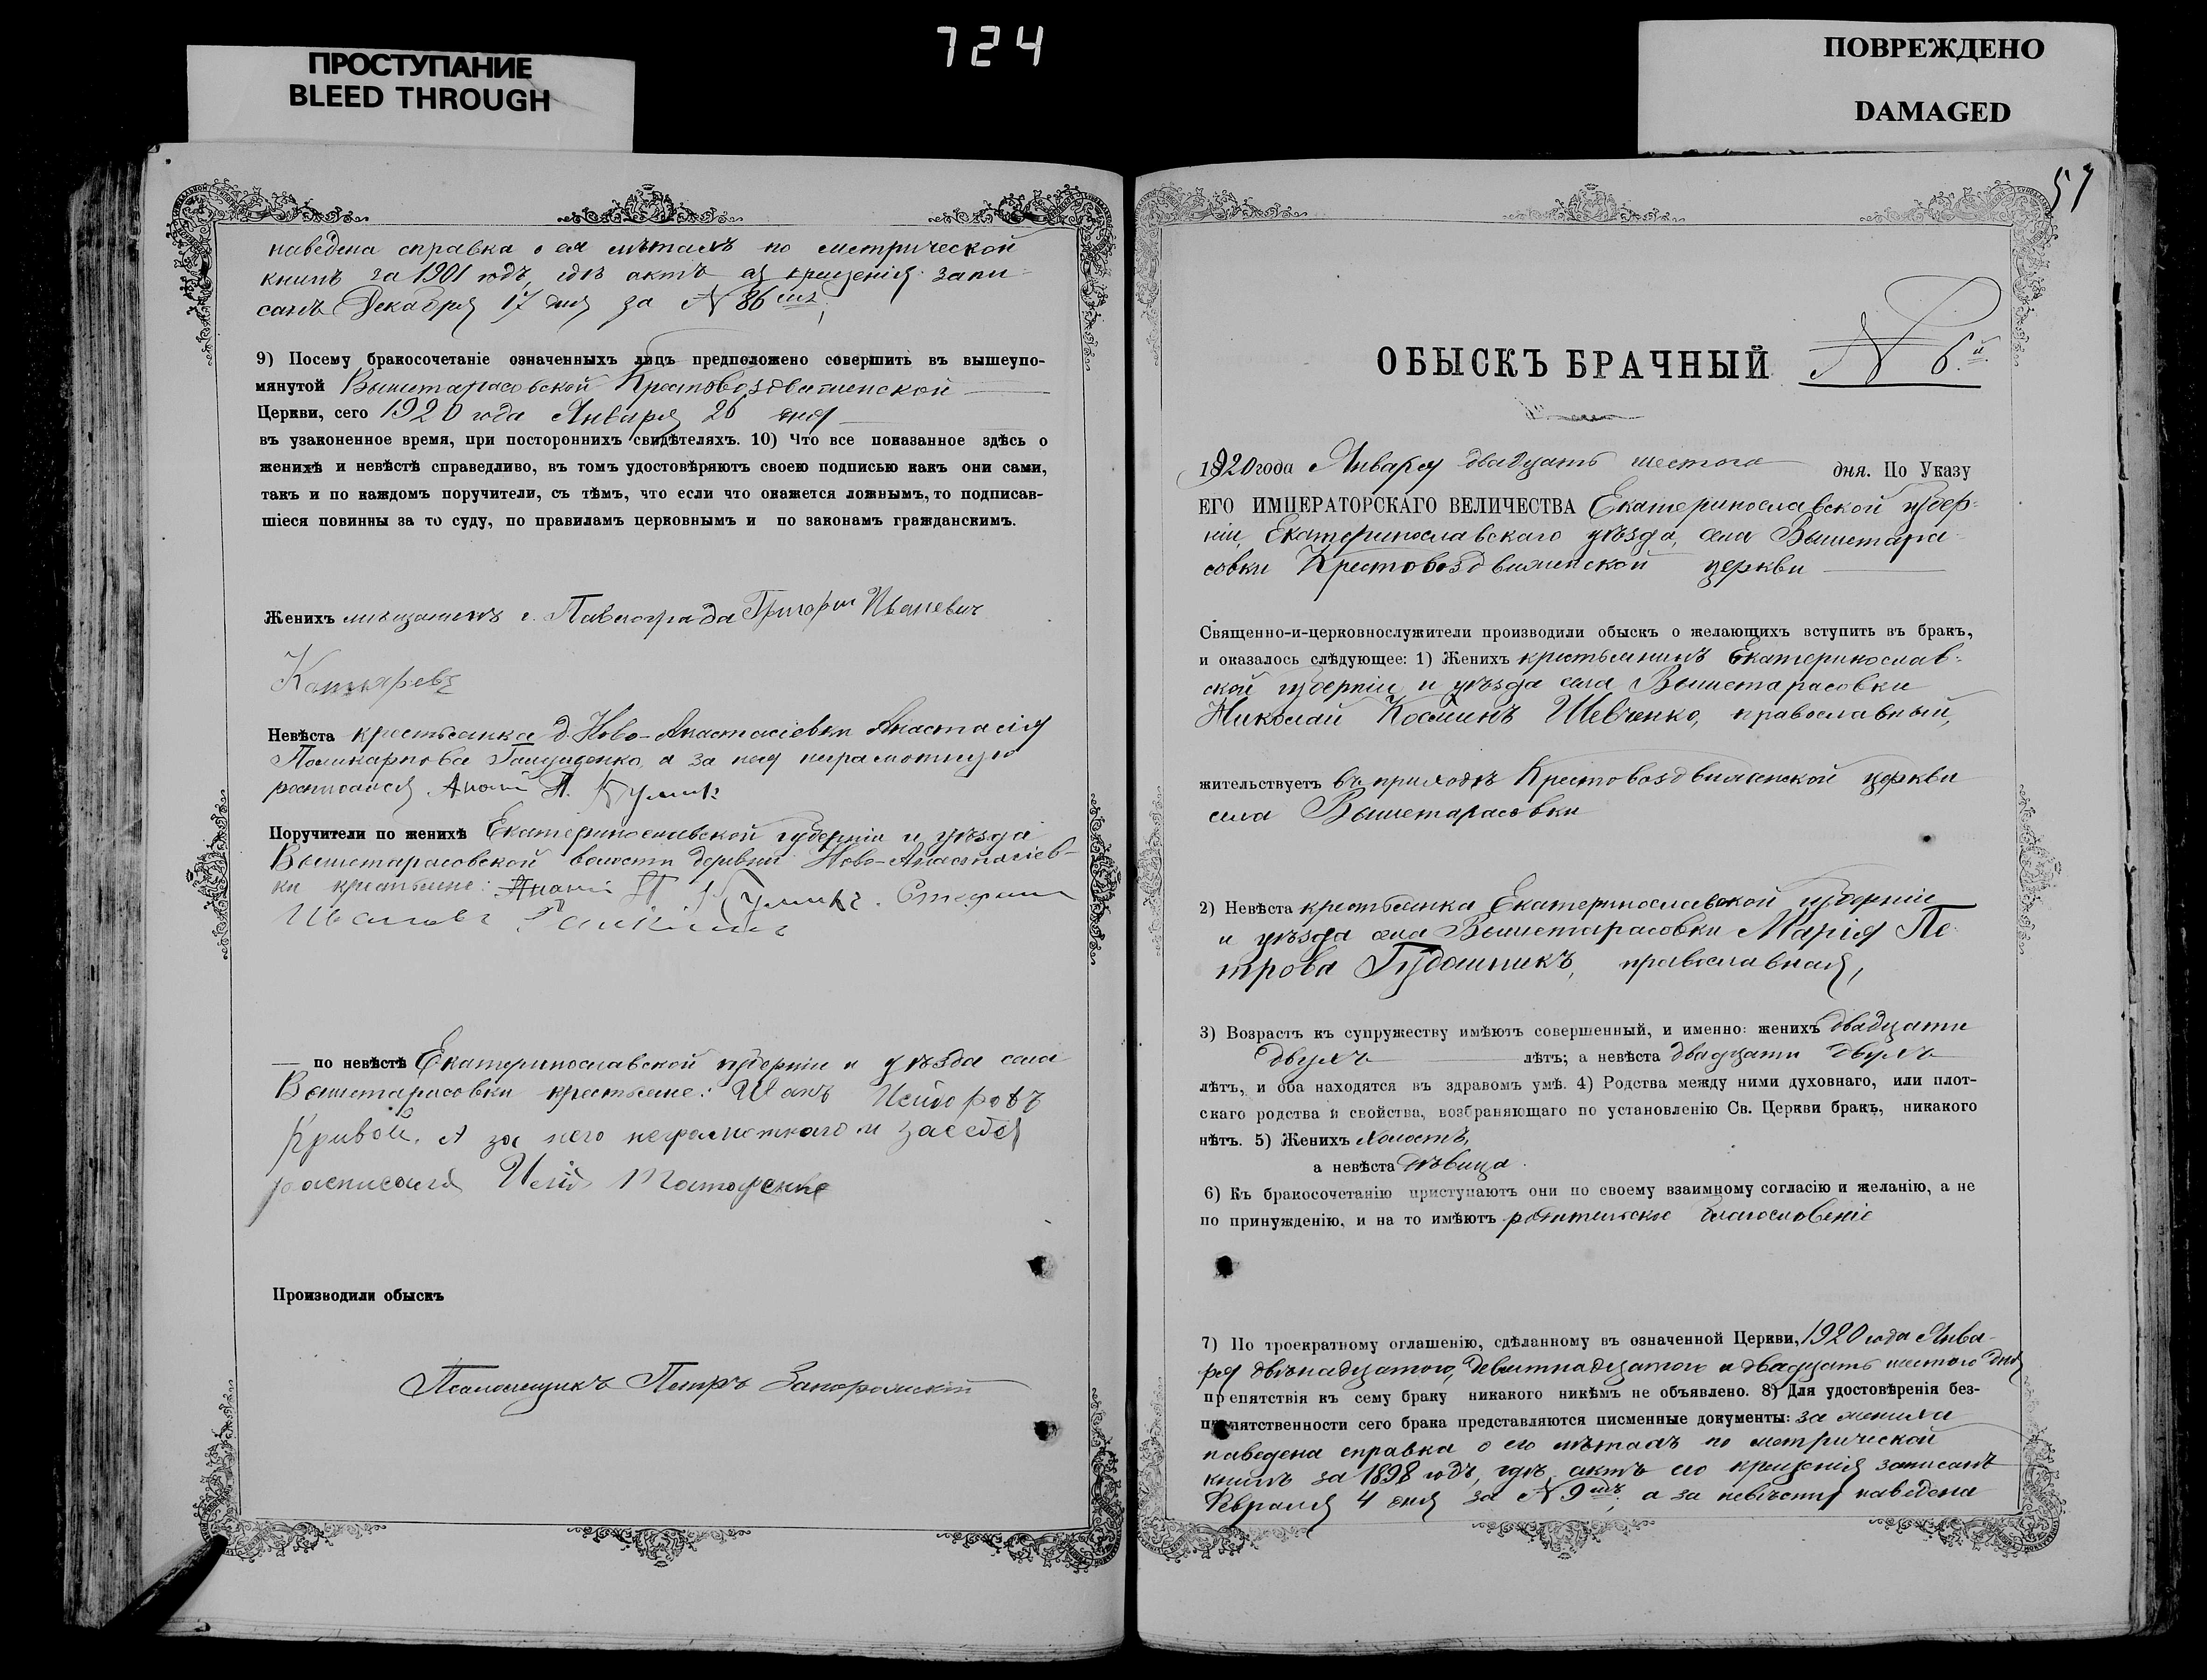 724
ПРОСТУПАНИЕ
BLEED THROUGH
ПОВРЕЖДЕНО
DAMAGED
наведена справка о ея лѣтахъ по метрической
книгѣ за 1901 годъ, гдѣ актъ ея крещенія запи-
санъ Декабря 17 дня за № 86
9) Посему бракосочетаніе означенныхъ лицъ предположено совершить въ вышеупо-
мянутой Вышетарасовской Крестовоздвиженской
Церкви, сего 1920 года Января 26 дня
въ узаконенное время, при постороннихъ свидѣтеляхъ. 10) Что все показанное здѣсь о
женихѣ и невѣстѣ справедливо, въ томъ удостовѣряютъ своею подписью какъ они сами,
такъ и по каждомъ поручители, съ тѣмъ, что если что окажется ложнымъ, то подписав-
шіеся повинны за то суду, по правиламъ церковнымъ и по законамъ гражданскимъ.
Женихъ мѣщанинъ г. Павлограда Григорій Ивановичъ
Невѣста крестьянка д. Ново-Анастасіевки Анастасія
Поликарпова а за нея неграмотную
росписался Ананій П. Кулик
Поручители по женихѣ Екатеринославской губерніи и уѣзда
Вышетарасовской волости деревни Ново-Анастасіев-
ки крестьяне: Ананій П Куликъ. Стефанъ
Ивановъ
— по невѣстѣ Екатеринославской губерніи и уѣзда села
Вышетарасовки крестьяне: Исидоровъ
Кривой, А за него неграмотнаго и за себя
расписался
Производили обыскъ
Псаломщикъ Петръ Запорожскій
57
ОБЫСКЪ БРАЧНЫЙ № 6.й
1920 года Января двадцать шестого дня. По Указу
ЕГО ИМПЕРАТОРСКАГО ВЕЛИЧЕСТВА Екатеринославской губер-
ніи, Екатеринославскаго уѣзда, села Вышетара-
совки Крестовоздвиженской церкви
Священно-и-церковнослужители производили обыскъ о желающихъ вступить въ бракъ,
и оказалось слѣдующее: 1) Женихъ крестьянинъ Екатеринослав-
ской губерніи и уѣзда села Вышетарасовки
Николай Косминъ Шевченко, православный,
жительствуетъ въ приходѣ Крестовоздвиженской церкви
села Вышетарасовки
2) Невѣста крестьянка Екатеринославской губерніи
и уѣзда села Вышетарасовки Марія Пе-
трова православная,
3) Возрастъ къ супружеству имѣютъ совершенный, и именно: женихъ двадцати
двухъ лѣтъ; а невѣста двадцати двухъ
лѣтъ, и оба находятся въ здравомъ умѣ. 4) Родства между ними духовнаго, или плот-
скаго родства и свойства, возбраняющаго по установленію Св. Церкви бракъ, никакого
нѣтъ. 5) Женихъ холостъ,
а невѣста дѣвица.
6) Къ бракосочетанію приступаютъ они по своему взаимному согласію и желанію, а не
по принужденію, и на то имѣютъ родительское благословеніе
7) По троекратному оглашенію, сдѣланному въ означенной Церкви, 1920 года Янва-
ря двѣнадцатого, девятнадцатого и двадцать шестого дня
препятствія къ сему браку никакого никѣмъ не объявлено. 8) Для удостовѣренія без-
препятственности сего брака представляются писменные документы: за жениха
наведена справка о его лѣтахъ по метрической
книгѣ за 1898 годъ, гдѣ актъ его крещенія записанъ
Февраля 4 дня за № 9мъ. а за невѣсту наведена